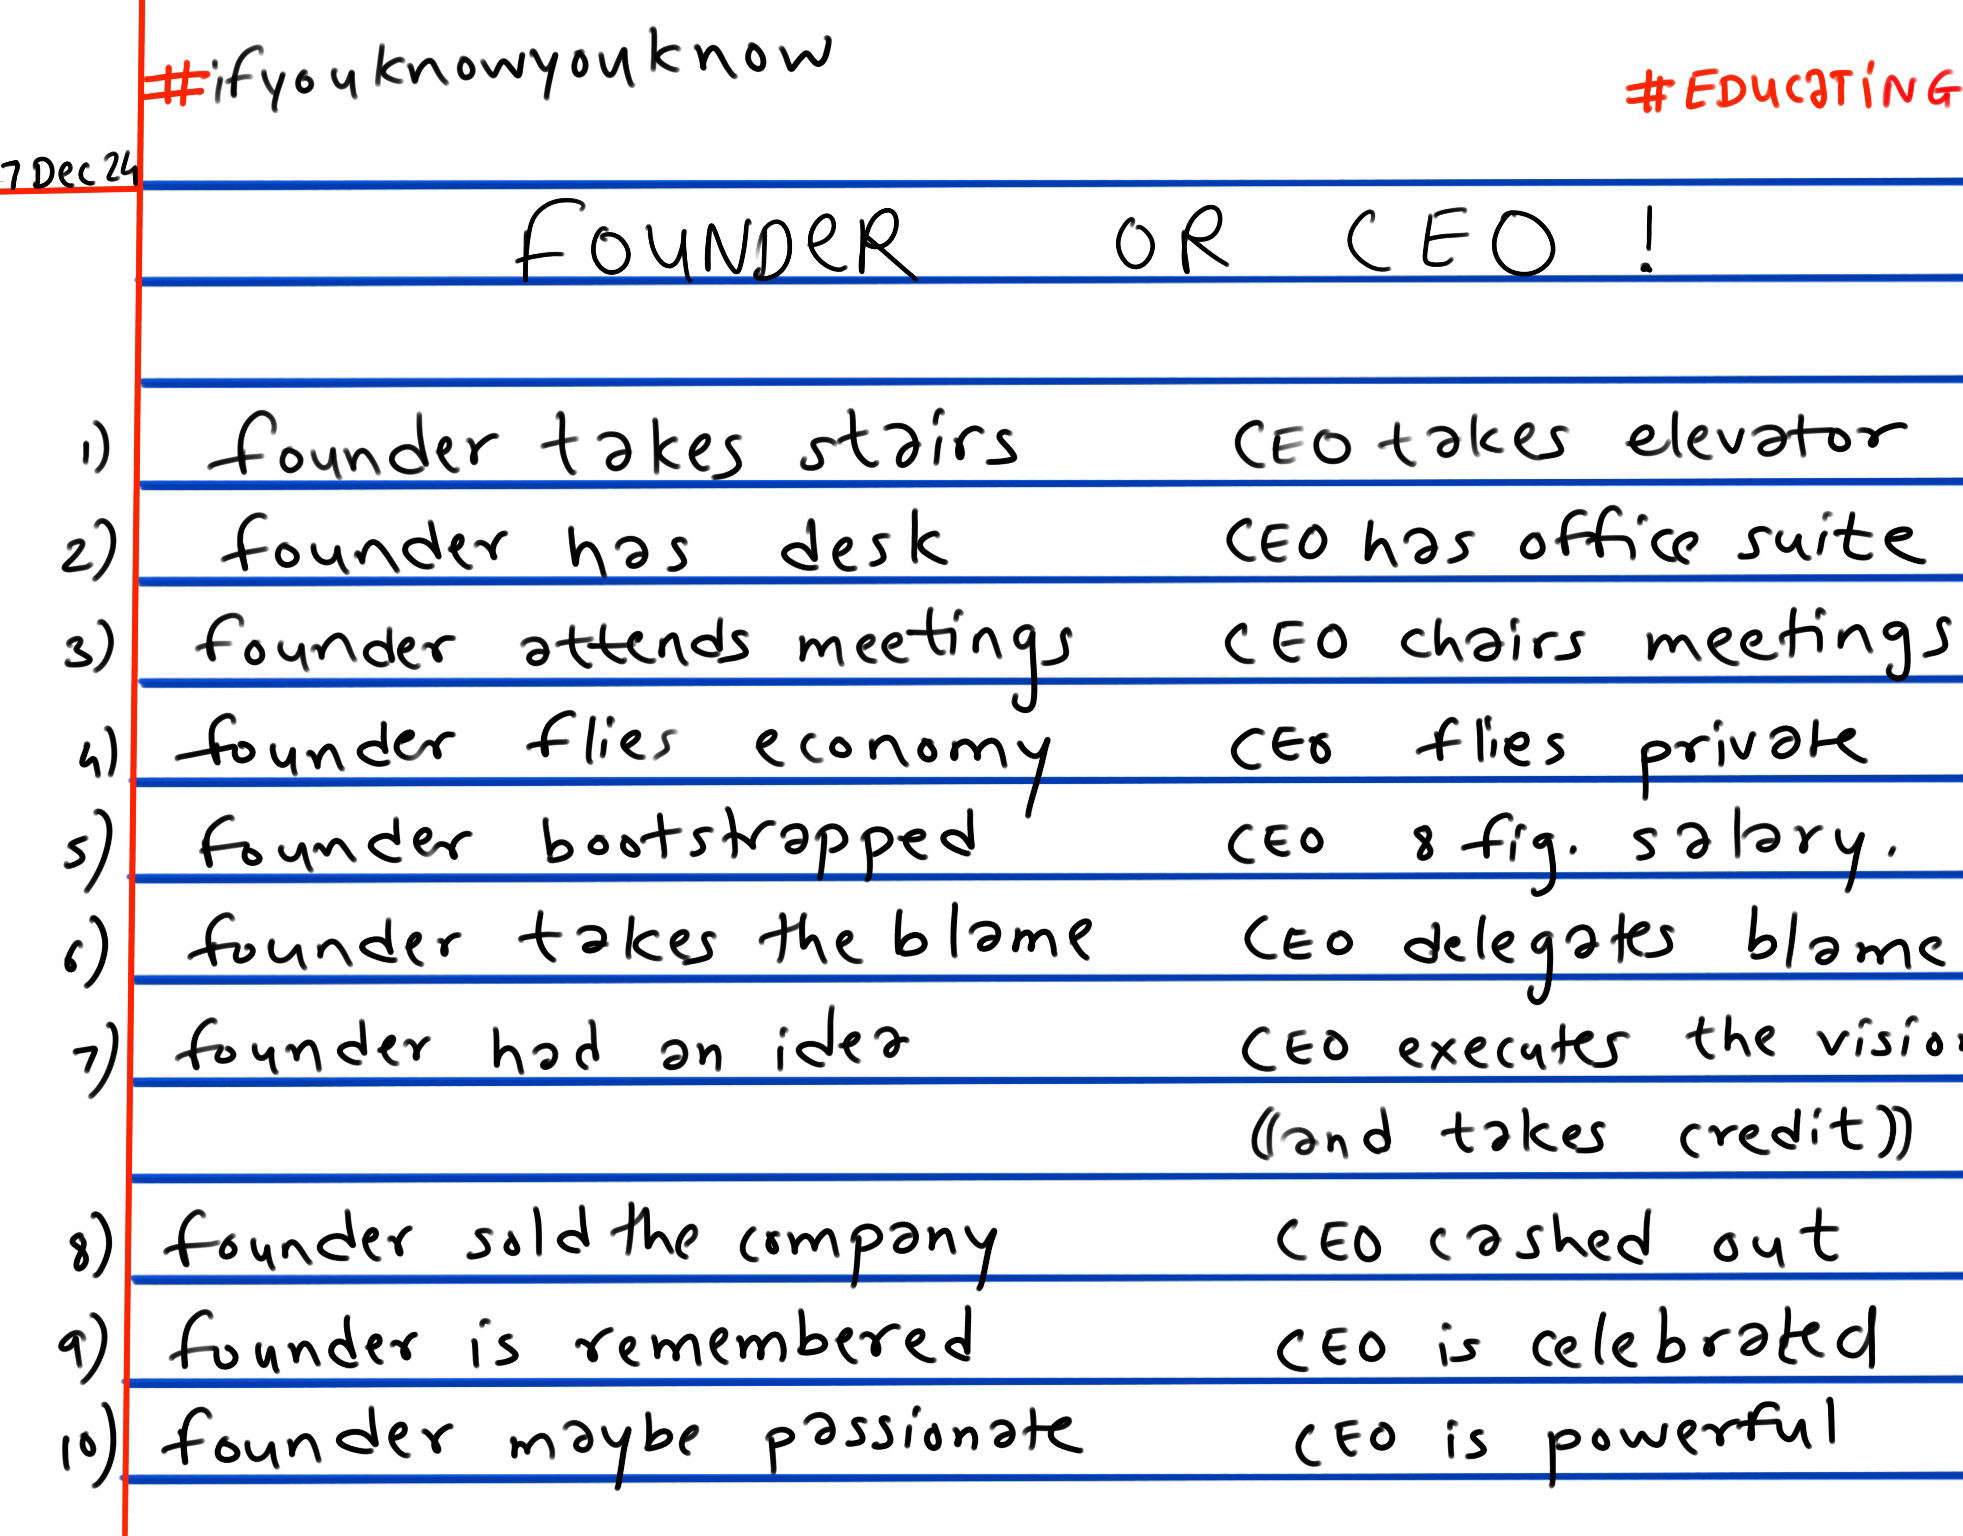 #ifyouknowyouknow
#EDUCATING
7 Dec 24
FOUNDER OR CEO !
1) founder takes stairs CEO takes elevator
2) founder has desk CEO has office suite
3) founder attends meetings CEO chairs meetings
4) founder flies economy CEO flies private
5) founder bootstrapped CEO 8 fig. salary.
6) founder takes the blame CEO delegates blame
7) founder had an idea CEO executes the vision
((and takes credit))
8) founder sold the company CEO cashed out
9) founder is remembered CEO is celebrated
10) founder maybe passionate CEO is powerful